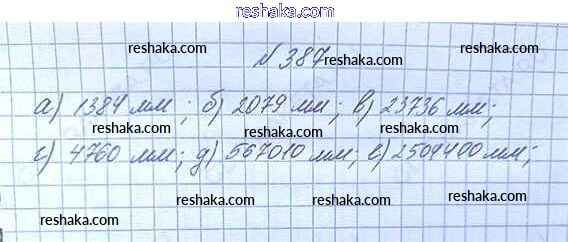 reshaka.com
reshaka.com
N 387 reshaka.com
reshaka.com
а) 1384 мм; б) 2079 мм; в) 23736 мм;
reshaka.com reshaka.com
г) 4760 мм; д) 567010 мм; е) 2504400 мм;
reshaka.com reshaka.com
reshaka.com reshaka.com